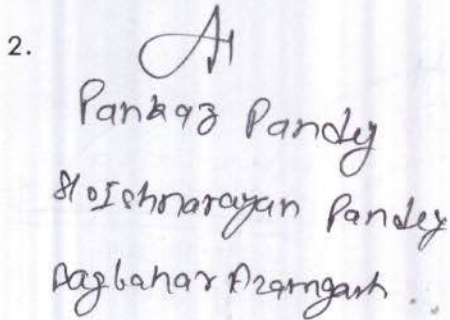 2.
Pankaz Pandey
S/o Ishnarayan Pandey
Bagbahar Azamgarh